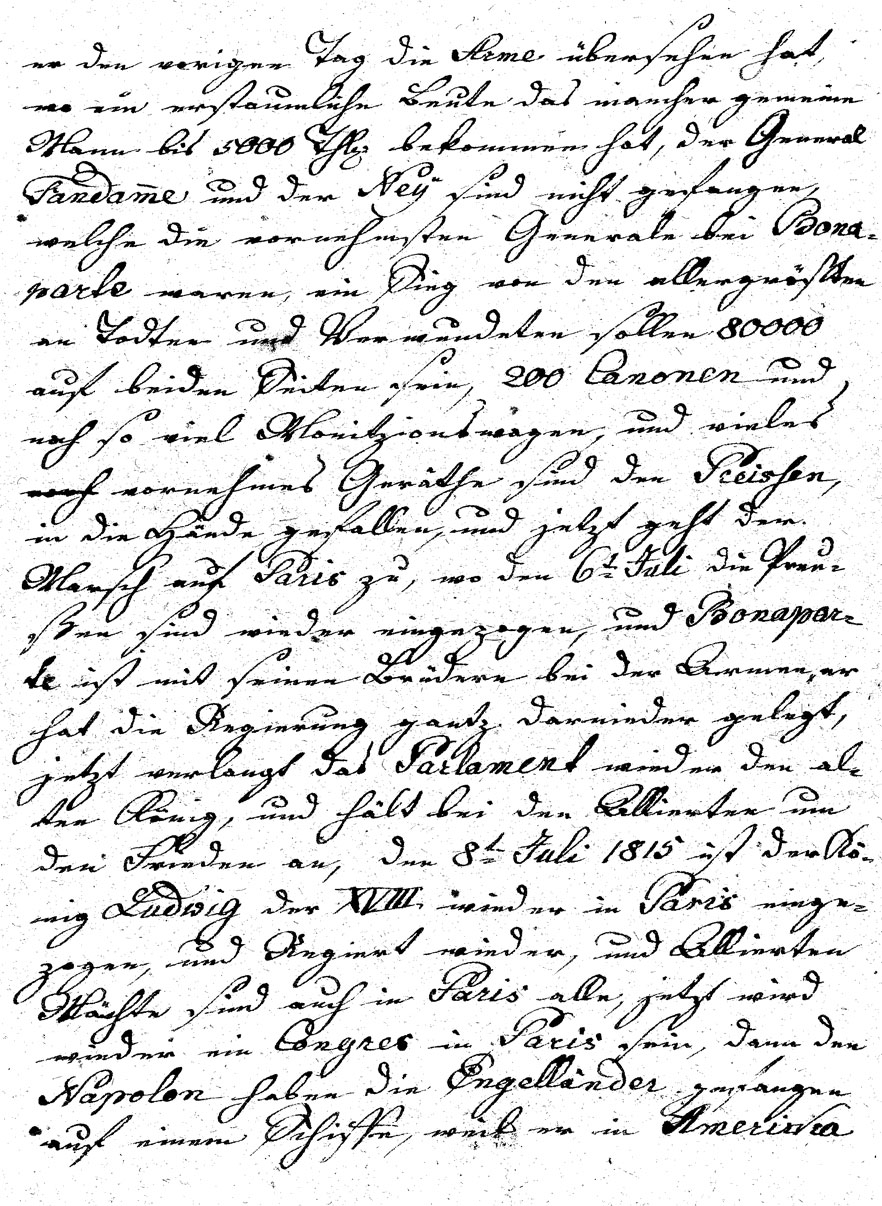 er den vorigen Tag die Arme übersehen hat,
wo ein erstaunliche Beute das mancher gemeine
Mann bis 5000 Thlr bekommen hat, der General
Fandam̅e und der Neÿ sind nicht gefangen,
welche die vornehmsten Generale bei Bona-
parte waren, ein Sieg von den allergrößten
an Todten und Verwundeten sollen 80000
auf beiden Seiten sein, 200 Canonen und
noch so viel Monitzionswägen, und vieles
noch vornehmes Geräthe sind den Preissen,
in die Hände gefallen, und jetzt geht der
Marsch auf Paris zu, wo den 6t Juli die Preu-
ßen sind wieder eingezogen, und Bonapar-
te ist mit seinen Brüdern bei der Armee, er
hat die Regierung gantz darnieder gelegt,
jetzt verlangt das Parlament wieder den al-
ten König, und hält bei den Allierten um
den Frieden an, den 8t Juli 1815 ist der Kö-
nig Ludwig der XVIII. wieder in Paris einge-
zogen, und Regiert wieder, und Allierten
Mächte sind auch in Paris alle, jetzt wird
wieder ein Congres in Paris sein, dann den
Napolon haben die Engelländer gefangen
auf einem Schiffe, weil er in Amerika